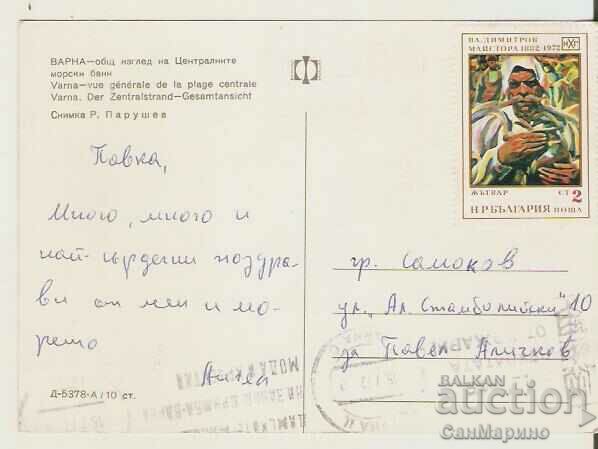 ВАРНА—общ изглед на Централните
морски бани
Varna—vue générale de la plage centrale
Varna. Der Zentralstrand—Gesamtansicht
Снимка Р. Парушев
Повка,
Много, много и
най-сърдечни поздра-
ви от мен и мо-
рето
Антеа
Д-5378-А/10 ст.
ВЛ. ДИМИТРОВ
МАЙСТОРА 1882-1972
ЖЪТВАР СТ 2
НР БЪЛГАРИЯ ПОЩА
гр. Самоков
ул. „Ал. Стамболийски" 10
за Павел Аличков
BALKAN
auction
СанМарино